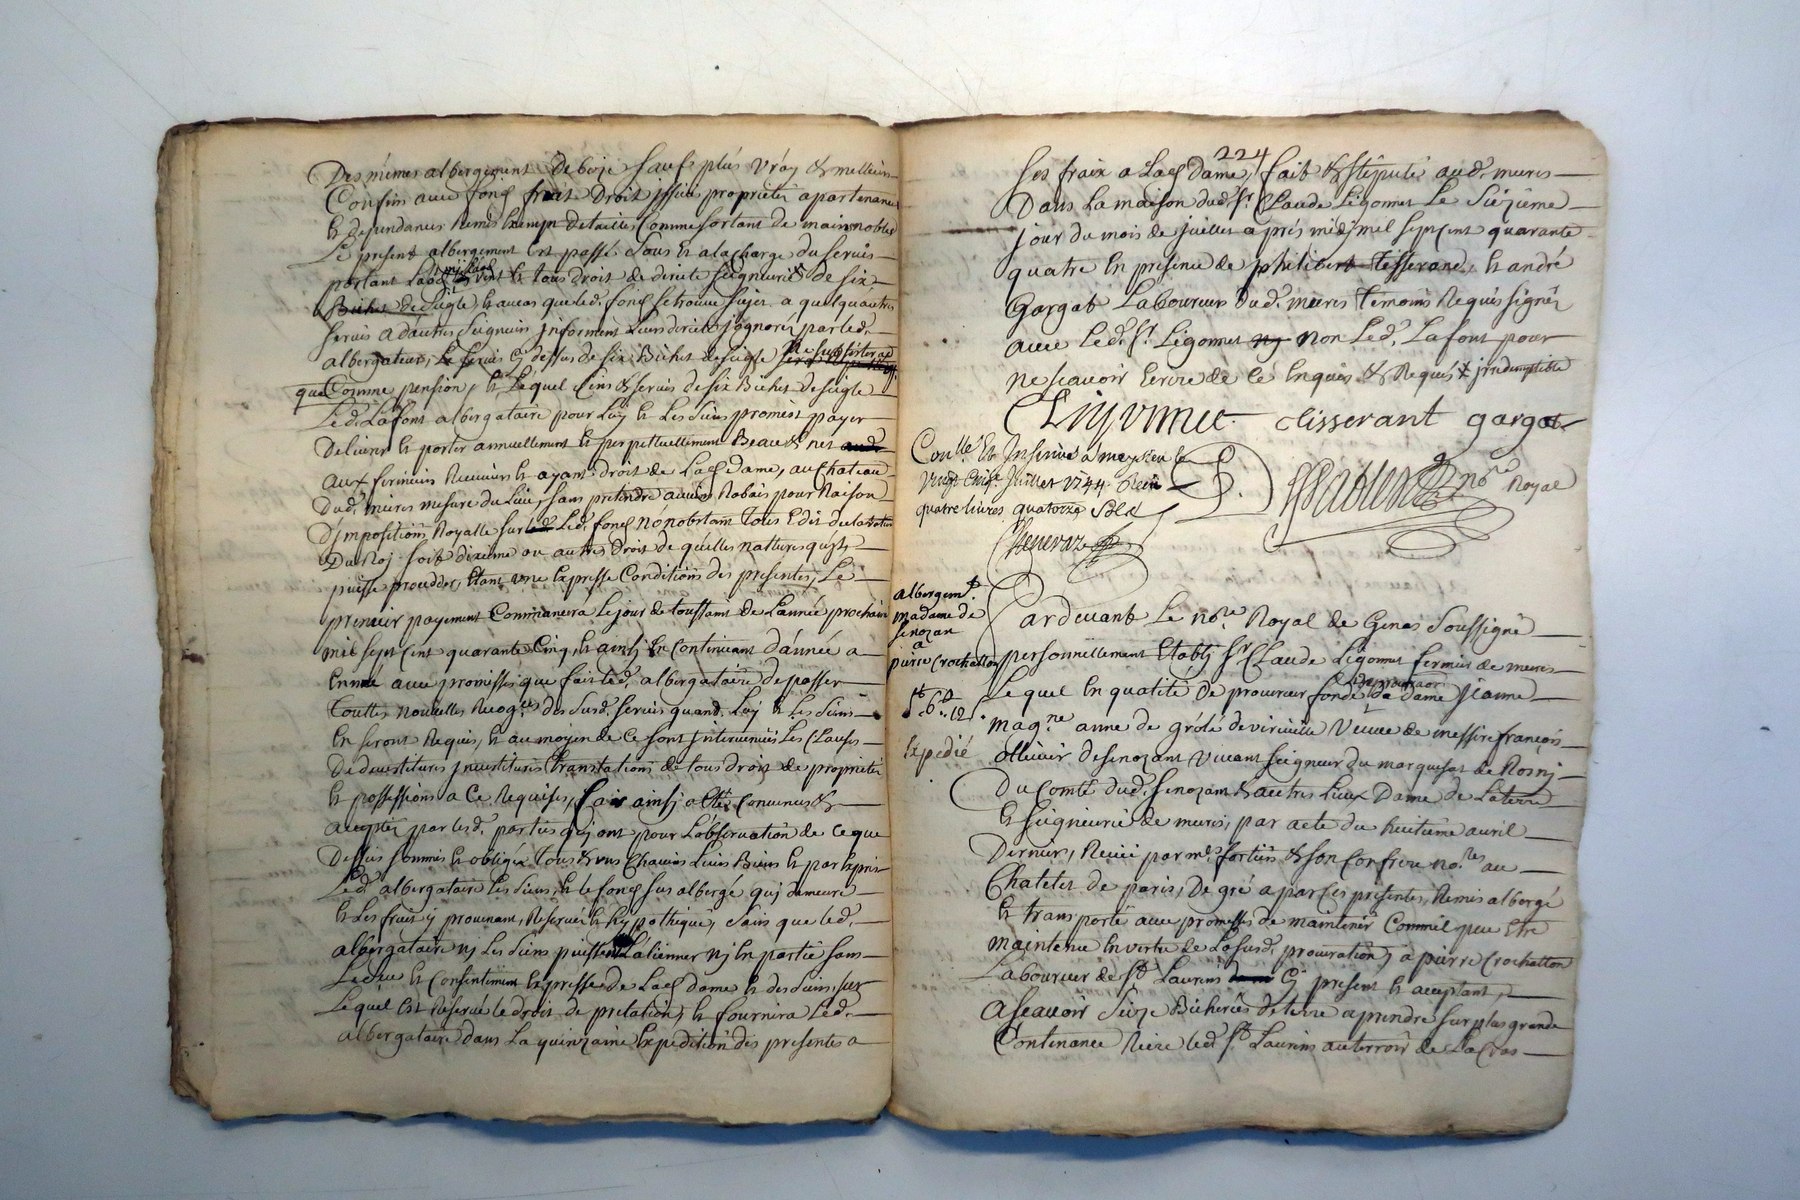 Des mémes albergement de boze sauf plus vray & meilleurs
Confins avec fond fruit Droit issues proprietés apartenances
& dependances Remis Exempt de tailles Comme sortant de main noble
Le present albergement Est passé Sous & a la charge du servis
portant & tous Droit de directe Seigneurie de six
Bichet de seigle, & au cas que led. fond se trouve sujet a quelqu'autres
servis a d'autres Seigneurs jnforment Leurs directes jgnorés par led.
albergateur, Le servis cy dessus de six Bichet de seigle
que Comme pension, & Lequel Cens & servis de six Bichet de seigle
Led. Lafont albergataire pour Luy & Les Siens promest payer
Delivrer & porter annuellement & perpetuellement Beau & net
aux fermiers Receveurs & ayant droit de Lad. Dame, au Chateau
Dud. mures mesure du Lieu, sans pretendre aucuns Rabais pour Raison
D'jmpositions Royalle sur Led. fond nonobstant tous Edit declaration
Du Roy soit dixieme ou autres droit de quelles nattures qu'ils
puisse proceder, Etant une Expresse Conditions des presentes, Le
premier payement Commancera le jour de toussaint de L'année prochaine
mil sept Cent quarante Cinq, & ainsy En Continuant d'année a
Année avec promisses que fait led. albergataire de passer
touttes nouvelles Recog.ces des susd. servis quand Luy & Les Siens
En seront Requis, & au moyen de Ce sont jntervenües Les Clauses
De devestitures jnvestitures translations de tous droit de proprietés
& possessions a Ce Requises, Car ainsy a Eté Convenus &
acceptés par lesd. parties qui ont pour L'observation de Ce que
Dessus soumis & obligés tous & uns Chacuns Leurs Biens & par Exprès
Led. albergataire Les Siens, & le fond sus albergé qui demeure
& Les fruit y provenant, Reservé & hypothequé, Sans que led.
albergataire ny Les Siens puissent L'alienner ny En partie sans
L'adveu & Consentement Expresse de Lad. dame & des siens, sur
Lequel Est Reservé le droit de prelation, & fournira Led.
albergataire dans La quinzaine Expedition des presentes a
224
Ses fraix a Lad. Dame, fait & stipulé aud. mures
Dans La maison dud. Sr. Claude Ligonnet Le Sizieme
jour du mois de juillet après midy mil sept Cent quarante
quatre En presence de philibert tisserand, & andré
Gargat Laboureurs dud. mures temoins Requis signés
avec Led. Sr. Ligonnet non Led. Lafont pour
ne scavoir Ecrire de Ce Enquis & Requis jrredemptible
tisserant gargat
nore Royal
Conllé Et Insinué a meyzieu le
vingt juillet 1744 Reçu
quatre livres quatorze sols
albergemt.
madame de
senozan
a
pierre Crochatton
Expedié
Pardevant Le nore. Royal de Genas Soussigné
personnellement Etably Sr. Claude Ligonnet fermier de mures
Lequel En qualité de procureur fondé de procuraon de Dame jeanne
magne. anne de grôlé de viriville Veuve de messire françois
ollivier de senozant vivant seigneur du marquisat de Rosny
Du Comté dud. Senozant & autres Lieux Dame de La terre
& Seigneurie de mures, par acte du huitieme avril
Dernier, Receu par me. fortier & son Confrere nores. au
Chatelet de paris, De gré a par Ces presentes, Remis albergé
& transporté avec promesses de maintenir Comme il peut Etre
maintenu En vertu de La susd. procuration, a pierre Crochatton
Laboureur de St. Laurens Cy present & acceptant,
A Scavoir Seize Bicherées de terre a prendre sur plus grande
Contenance Riere led. St. Laurens au terroir de La Cros